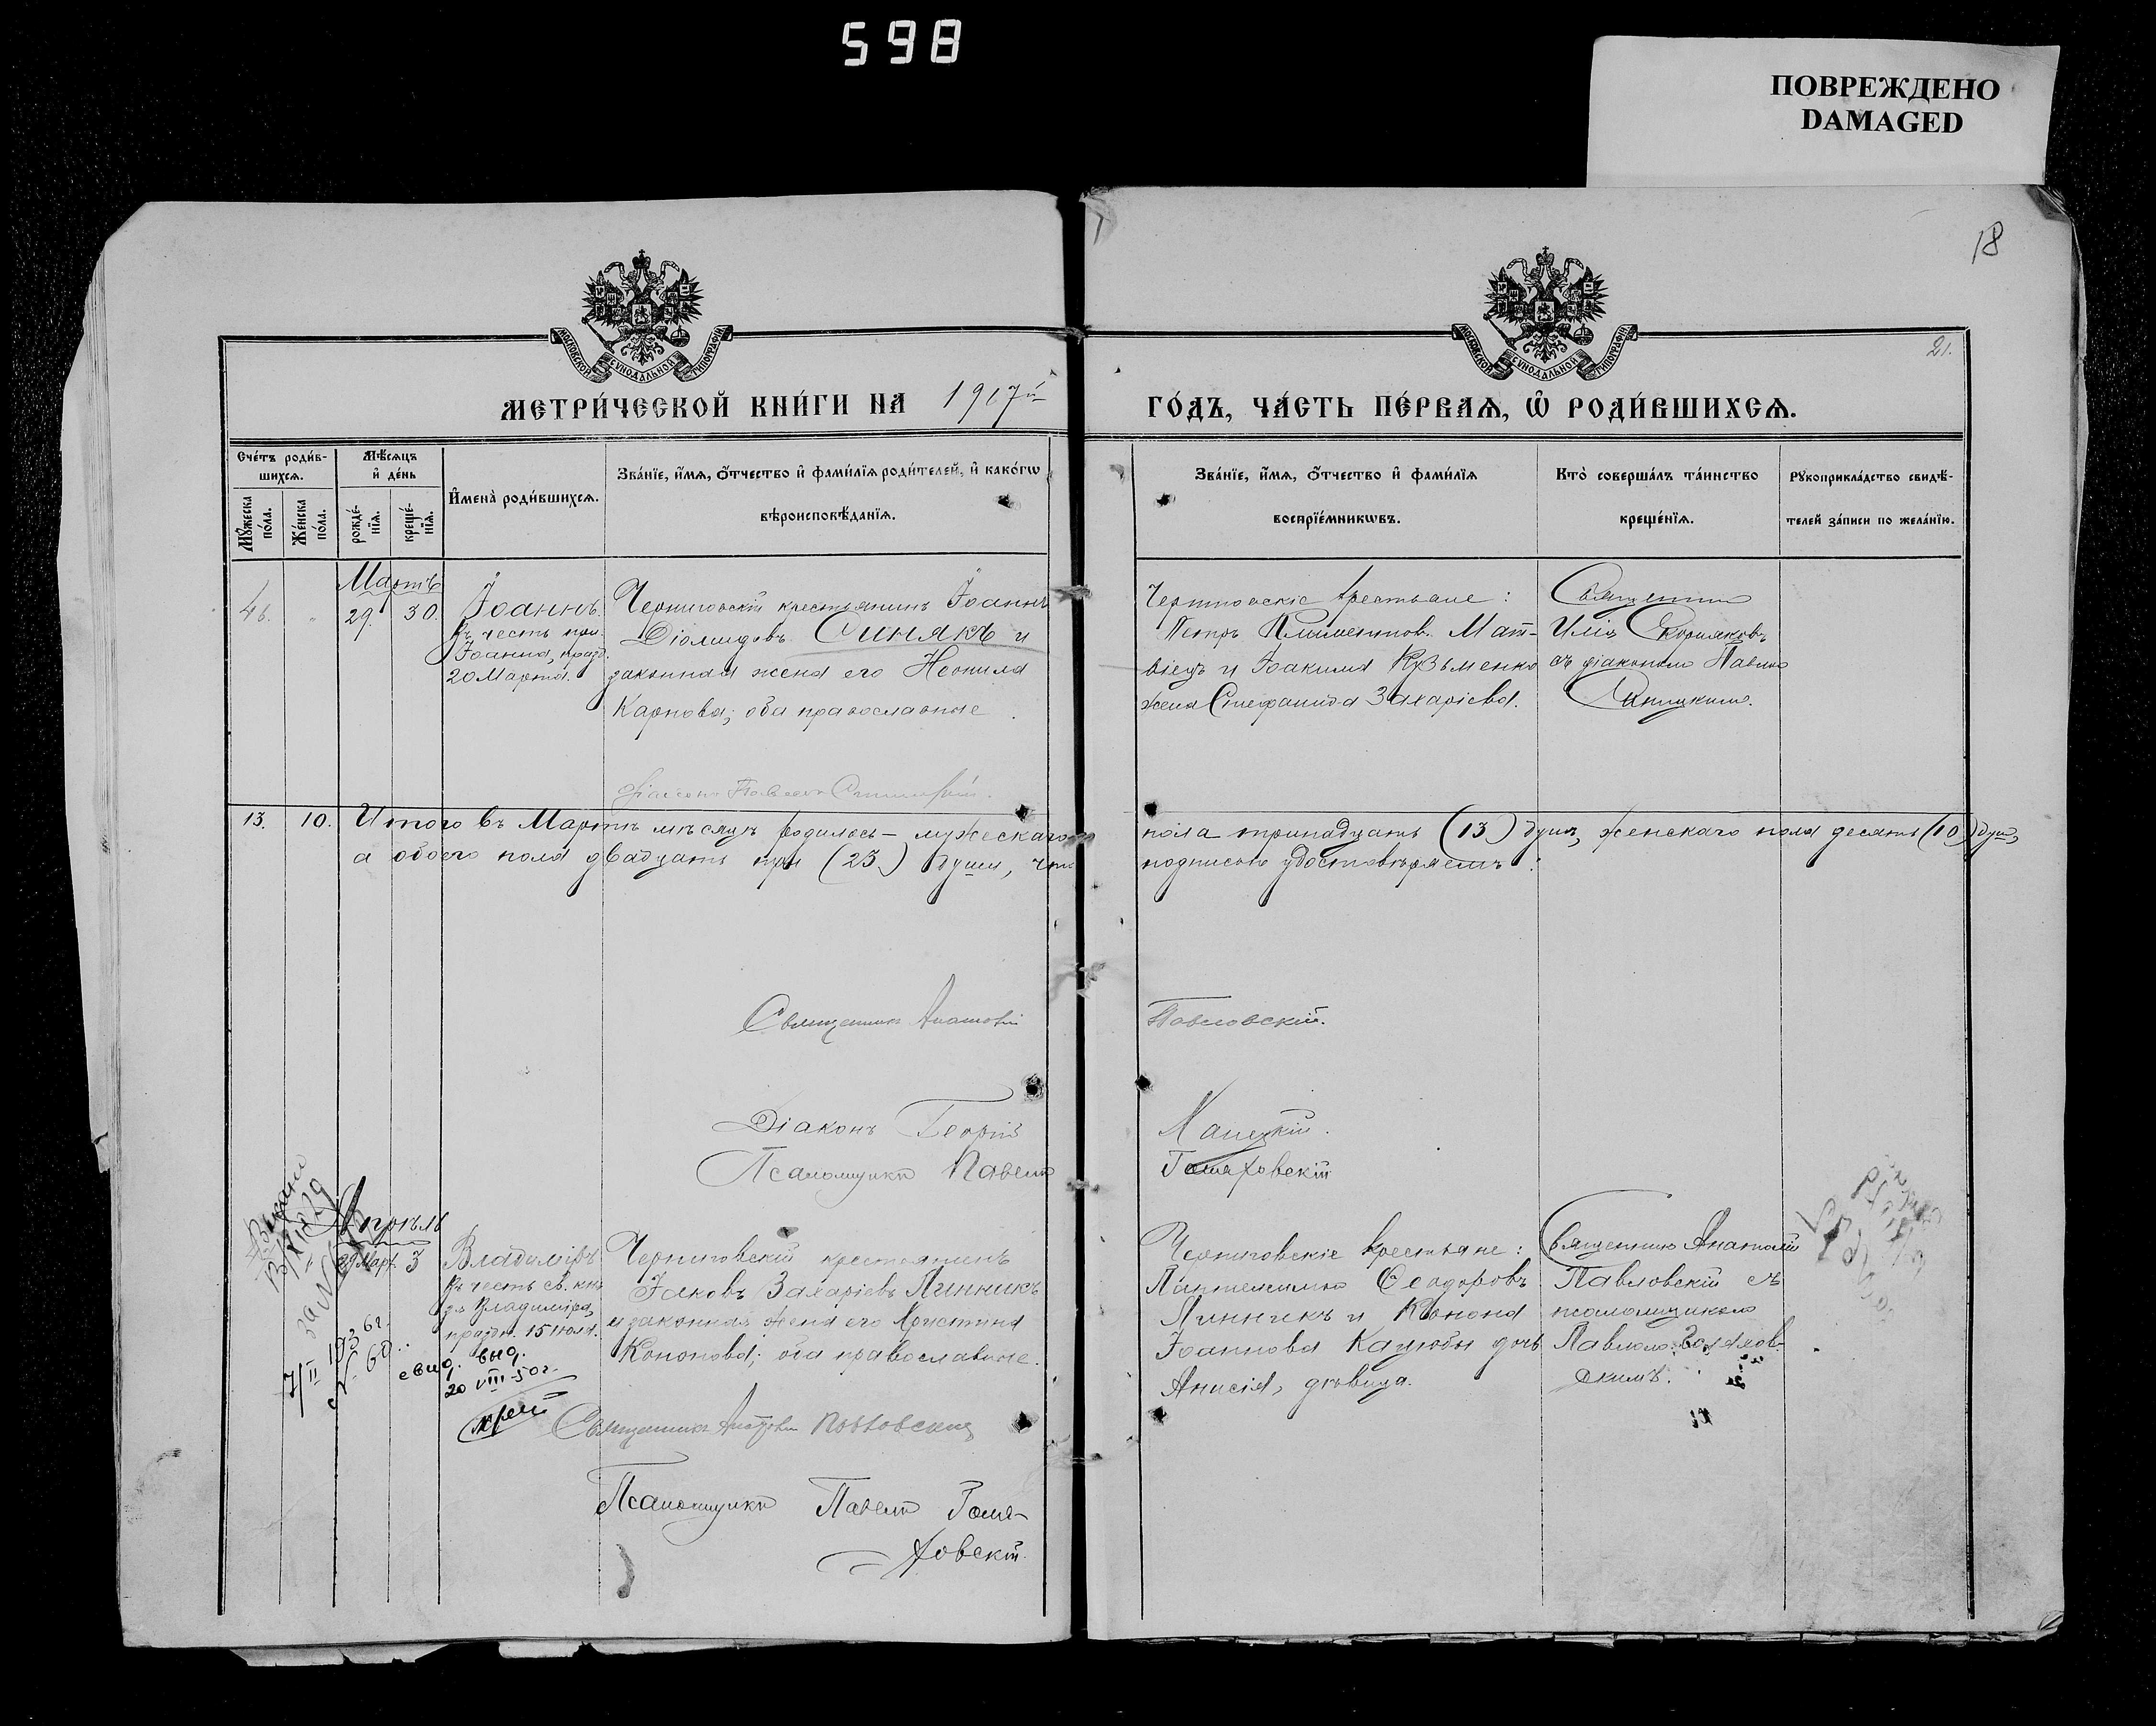 598
ПОВРЕЖДЕНО
DAMAGED
18
21.
МОСКОВСКОЙ СѴНОДАЛЬНОЙ ТИПОГРАФІИ
МОСКОВСКОЙ СѴНОДАЛЬНОЙ ТИПОГРАФІИ
МЕТРИ́ЧЕСКОЙ КНИ́ГИ НА 1917й
ГО́ДЪ, ЧА́СТЬ ПЕ́РВАЯ, Ѡ РОДИ́ВШИХСЯ.
Сче́тъ роди́в-
шихся.
Мѣ́сяцъ
и де́нь
Мꙋ́жеска
по́ла.
Же́нска
по́ла.
рожде́-
нїѧ.
креще́-
нїѧ.
И́мена̀ роди́вшихсѧ.
Зва́нїе, и́мѧ, ѻ́тчество и фами́лїѧ роди́телей, и како́гѡ
вѣроисповѣ́данїѧ.
Зва́нїе, и́мѧ, ѻ́тчество и фами́лїѧ
воспрїе́мникѡвъ.
Кто̀ соверша́лъ та́инство
креще́нїѧ.
Рꙋкоприкла́дство свидѣ́-
телей за́писи по жела́нїю.
Мартъ
29. 30.
Іоаннъ.
Въ честь
Іоанна, празд.
20 Марта.
Черниговскій крестьянинъ Іоаннъ
Діомидовъ Синякъ и
законная жена его Неонила
Карпова; оба православные
Черниговскіе крестьане:
Петръ Климентовъ Мат-
віецъ и Іоакима Кузьменко
жена Стефанида Захаріева.
Священник
Илія
съ діакономъ Павломъ
13. 10. Итого въ Мартѣ мѣсяцѣ родилось - мужескаго
пола тринадцать (13) душъ, женскаго пола десять (10) душъ,
а обоего пола двадцать три (23) души, что
подписью удостовѣряемъ:
Священникъ Анатолій
Павловскій.
Діаконъ Георгій
Псаломщикъ Павелъ
Голяховскій
Апрѣль
29 Март. 3
Владиміръ
Въ честь св. кня-
зя Владиміра,
праздн. 15 Іюля.
Черниговскій крестьянинъ
Іаковъ Захаріевъ Линникъ
и законная жена его Христина
Кононова; оба православные.
Черниговскіе крестьяне:
Пантелимонъ Ѳеодоровъ
Линникъ и Конона
Іоаннова Кацюбы дочь
Анисія, дѣвица.
Священникъ Анатолій
Павловскій съ
псаломщикомъ
Павломъ Голяхов-
скимъ.
7/II 1936 г.
N 60
свид. выд.
20 VIII-50 г.
Священникъ Анатолій Павловскій
Псаломщикъ Павелъ Голя-
ховскій.